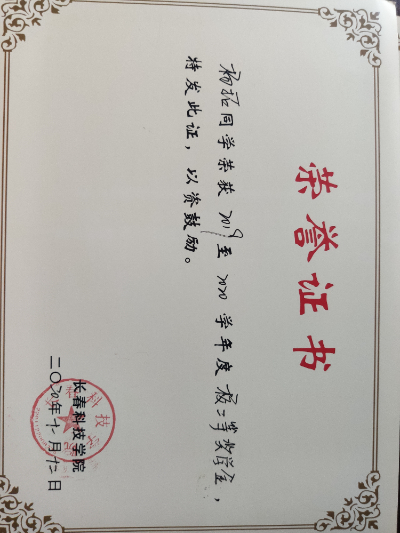 荣誉证书
杨拓同学荣获2019至2020学年度校二等奖学金，
特发此证，以资鼓励。
长春科技学院
二〇二〇年十二月十二日